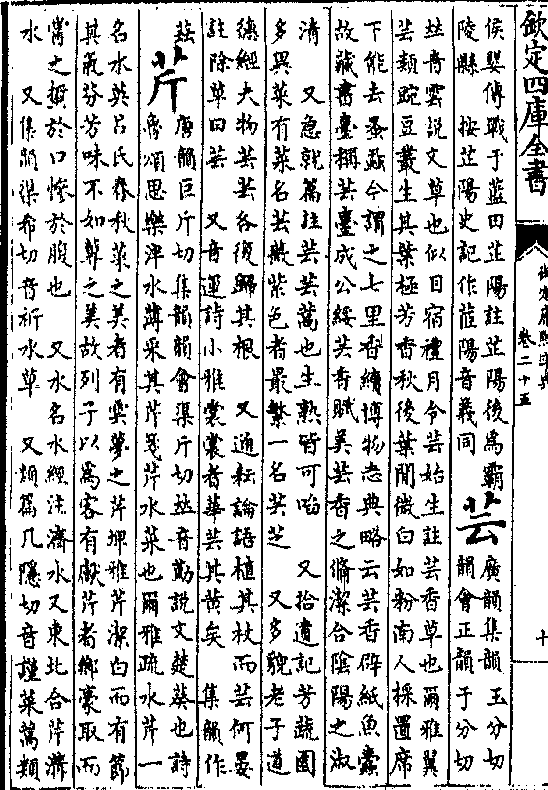 欽定四庫全書
御定康熙字典
卷二十五
十
侯嬰傳戰于藍田芷陽註芷陽後爲霸
陵縣　按芷陽史記作茝陽音義同
芸
廣韻集韻　王分切
韻會正韻于分切
𠀤音雲説文草也似目宿禮月令芸始生註芸香草也爾雅翼
芸類豌豆叢生其葉極芳香秋後葉間微白如粉南人採置席
下能去蚤蝨今謂之七里香續博物志典略云芸香辟紙魚蠹
故藏書臺稱芸臺成公綏芸香賦美芸香之脩潔合陰陽之淑
清　又急就篇註芸芸蒿也生熟皆可啗　又拾遺記芳蔬園
多異菜有菜名芸薇紫色者最繁一名芸芝　又多貌老子道
德經夫物芸芸各復歸其根　又通耘論語植其杖而芸何晏
註除草曰芸　又音運詩小雅裳裳者華芸其黄矣　集韻作
𦿏
芹
唐韻巨斤切集韻韻會渠斤切𠀤音勤説文楚葵也詩
魯頌思樂泮水薄采其芹箋芹水菜也爾雅疏水芹一
名水英吕氏春秋菜之美者有雲夢之芹埤雅芹潔白而有節
其氣芬芳味不如蓴之美故列子以爲客有獻芹者鄉豪取而
嘗之蜇於口慘於腹也　又水名水經注濟水又東北合芹溝
水　又集韻渠希切音祈水草　又類篇几隱切音謹菜蒿類